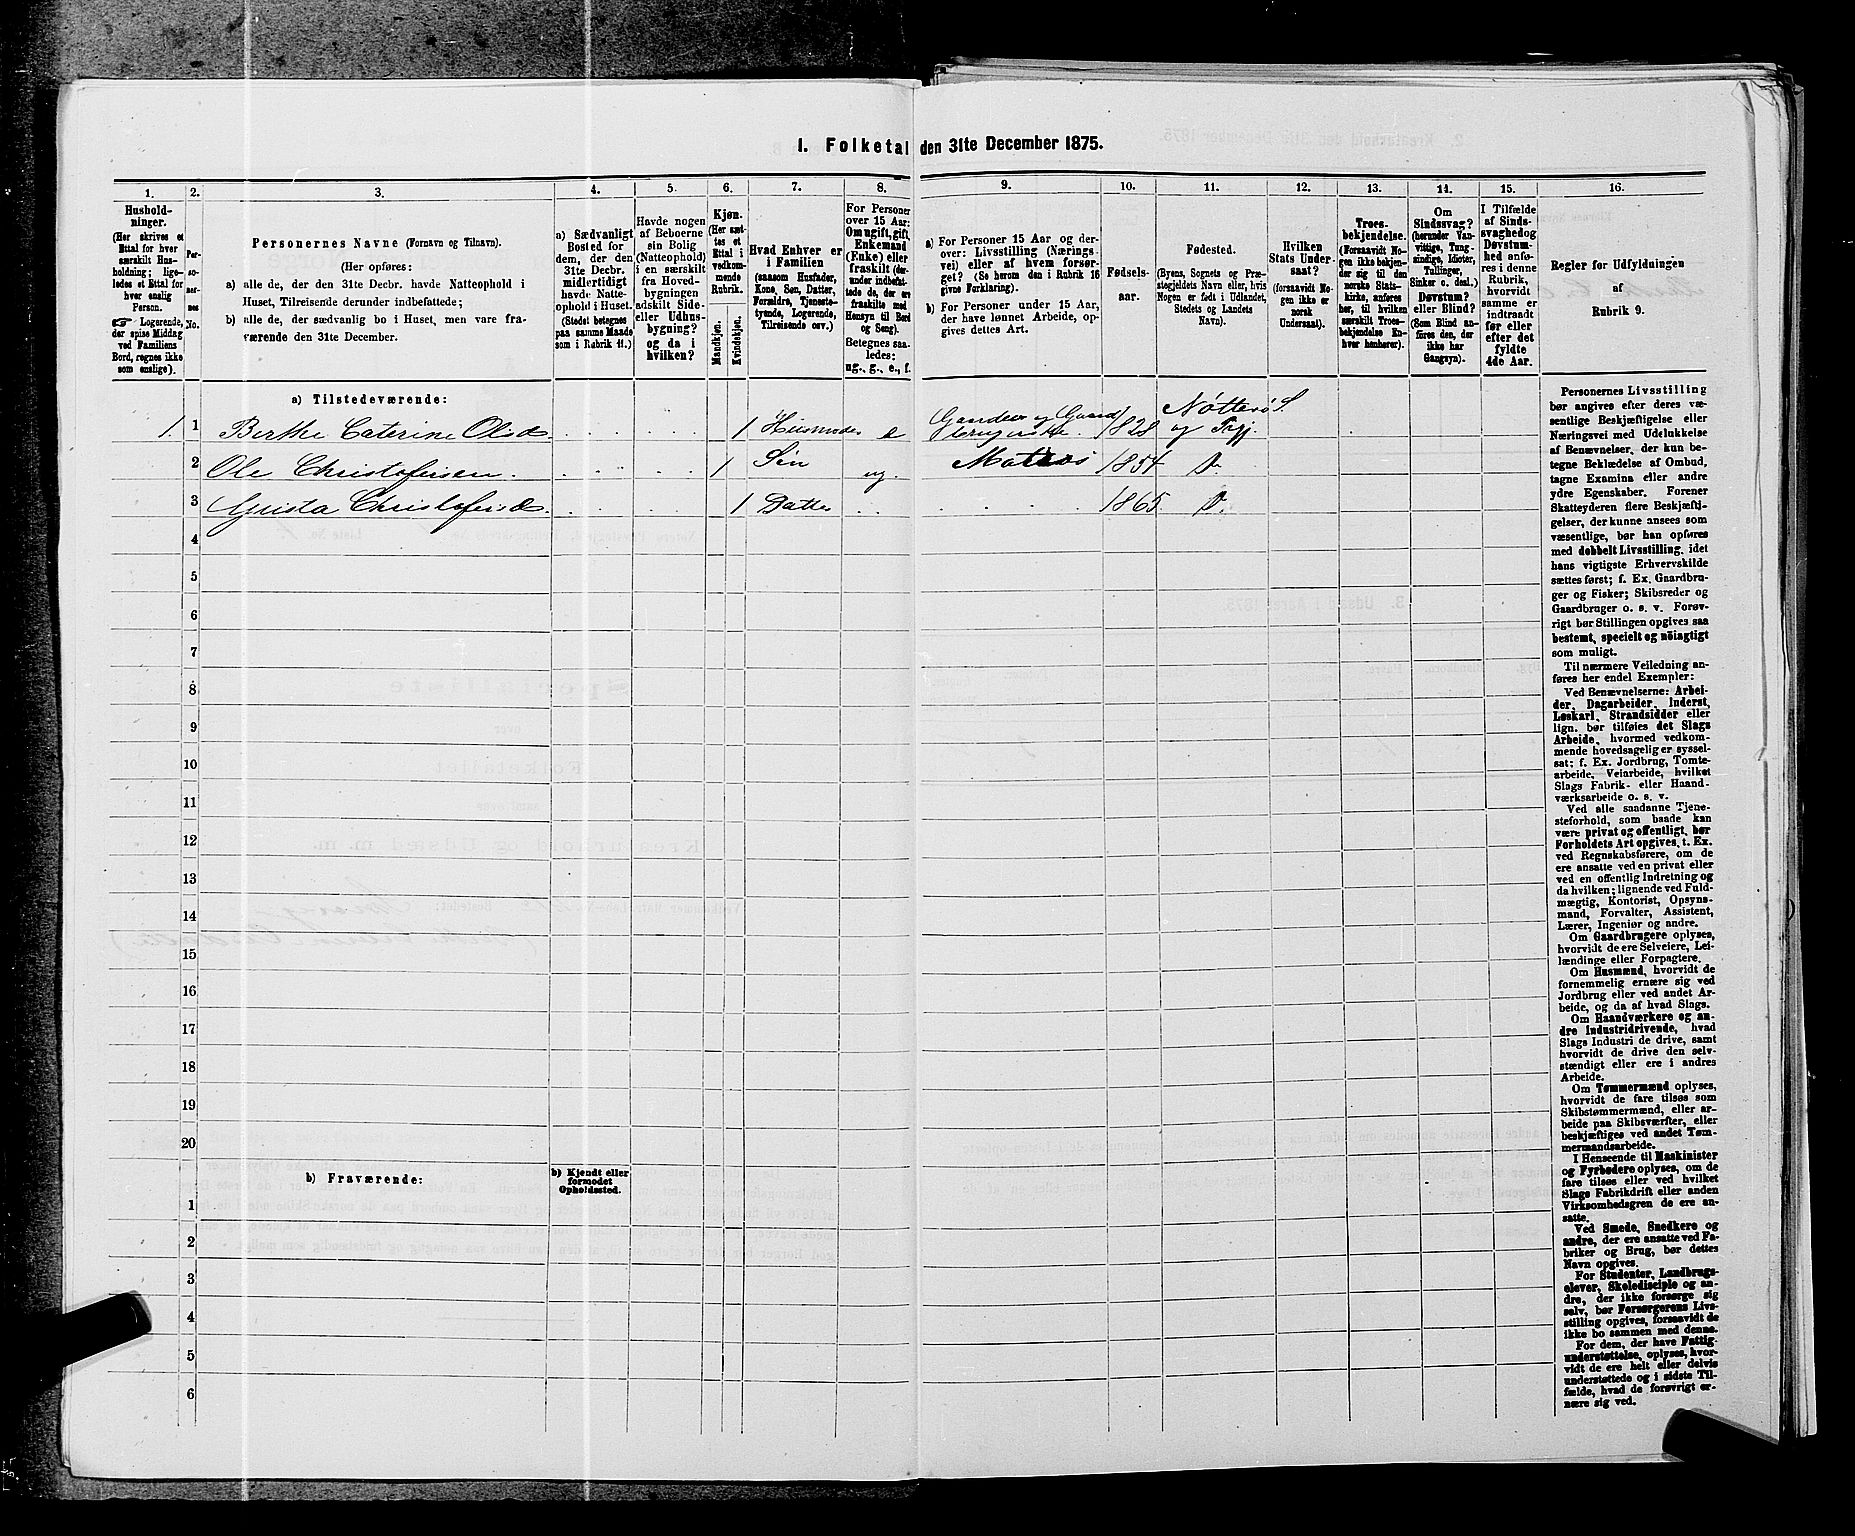 1. Folketal den 31te December 1875.
1.
2.
3.
4.
5.
6.
7.
8.
9.
10.
11.
12.
13.
14.
15.
16.
Hushold-
ninger.
(Her skrives et
Ettal for hver
særskilt Hus-
holdning; lige-
ledes et Ettal for
hver enslig
Person.
☞ Logerende,
der spise Middag
ved Familiens
Bord, regnes ikke
som enslige).
Per-
so-
ner-
nes
No.
Personernes Navne (Fornavn og Tilnavn).
(Her opføres:
a) alle de, der den 31te Decbr. havde Natteophold i
Huset, Tilreisende derunder indbefattede;
b) alle de, der sædvanlig bo i Huset, men vare fra-
værende den 31te December.
a) Sædvanligt
Bosted for
dem, der den
31te Decbr.
midlertidigt
havde Natte-
ophold i Huset.
(Stedet betegnes
paa samme Maade
som i Rubrik 11.)
Havde nogen
af Beboerne
sin Bolig
(Natteophold)
i en særskilt
fra Hoved-
bygningen
adskilt Side-
eller Udhus-
bygning?
og da i
hvilken?
Kjøn.
(Her sæt-
tes et
Ettal i
vedkom-
mende
Rubrik.
Mandkjøn.
Kvindekjøn.
Hvad Enhver er
i Familien
(saasom Husfader,
Kone, Søn, Datter,
Forældre, Tjeneste-
tyende, Logerende,
Tilreisende osv.)
For Personer
over 15 Aar:
Om ugift, gift,
Enkemand
(Enke) eller
fraskilt (der-
under indbefat-
tede de, der ere
fraskilte med
Hensyn til Bord
og Seng).
Betegnes saa-
ledes:
ug., g., e., f.
a) For Personer 15 Aar og der-
over: Livsstilling (Nærings
vei) eller af hvem forsør-
get? (Se herom den i Rubrik 16
givne Forklaring).
b) For Personer under 15 Aar,
der have lønnet Arbeide, op-
gives dettes Art.
Fødsels-
aar.
Fødested.
(Byens, Sognets og Præ-
stegjeldets Navn eller, hvis
Nogen er født i Udlandet,
Stedets og Landets
Navn).
Hvilken
Stats Under-
saat?
(forsaavidt No-
gen ikke er
norsk
Undersaat).
Troes-
bekjendelse.
(Forsaavidt No-
gen ikke bekjen-
der sig til den
norske Stats-
kirke, anføres
her, til hvilken
særskilt Troes-
bekjendelse En-
hver henhører).
Om
Sindssvag?
(herunder Van-
vittige, Tung-
sindige, Idioter,
Tullinger,
Sinker o. desl.)
Døvstum?
eller Blind?
(Som Blind an-
føres den, der
ikke har
Gangsyn).
I Tilfælde
af Sinds-
svaghed og
Døvstum-
hed anfø-
res i denne
Rubrik,
hvorvidt
samme er
indtraadt
før eller
efter det
fyldte
4de Aar.
Regler for Udfyldningen
af
Rubrik 9.
a) Tilstedeværende:
1. 1 Berthe Caterine Olsd. 1 Husmoder e Gaardeier og Gaard 1828 Nötterö S. og Prgj.
2 Ole Christofersen. 1 Sön ug. Matros 1854 Do.
3 Christofersd. 1 Datter 1865 Do.
4
5
6
7
8
9
10
11
12
13
14
15
16
17
18
19
20
b) Fraværende:
b) Kjendt eller
formodet
Opholdssted.
1
2
3
4
5
6
Personernes Livsstilling
bør angives efter deres væ-
sentlige Beskjæftigelse eller
Næringsvei med Udelukkelse
af Benævnelser, der kun be-
tegne Beklædelse af Ombud,
tagne Examina eller andre
ydre Egenskaber. Forener
Skatteyderen flere Beskjæfti-
gelser, der kunne ansees som
væsentlige, bør han opføres
med dobbelt Livsstilling, idet
hans vigtigste Erhvervskilde
sættes først; f. Ex. Gaardbru-
ger og Fisker; Skibsreder og
Gaardbruger o. s. v. Forøv-
rigt bør Stillingen opgives saa
bestemt, specielt og nöiagtigt
som muligt.
Til nærmere Veiledning an-
føres her endel Exempler:
Ved Benævnelserne: Arbei-
der, Dagarbeider, Inderst,
Løskarl, Strandsidder eller
lign. bør tilføies det Slags
Arbeide, hvormed vedkom-
mende hovedsagelig er syssel-
sat; f. Ex. Jordbrug, Tomte-
arbeide, Veiarbeide, hvilket
Slags Fabrik- eller Haand-
værksarbeide o. s. v.
Ved alle saadanne Tjene-
steforhold, som baade kan
være privat og offentligt, bør
Forholdets Art opgives, t. Ex.
ved Regnskabsførere, om de
ere ansatte ved en privat eller
ved en offentlig Indretning og
da hvilken; lignende ved Fuld-
mægtig, Kontorist, Opsyns-
mand, Forvalter, Assistent,
Lærer, Ingeniør og andre.
Om Gaardbrugere oplyses,
hvorvidt de ere Selveiere, Lei-
lændinge eller Forpagtere.
Om Husmænd, hvorvidt de
fornemmelig ernære sig ved
Jordbrug eller ved andet Ar-
beide, og da af hvad Slags.
Om Haandværkere og an-
dre industridrivende, hvad
Slags Industri de drive, samt
hvorvidt de drive den selv-
stændigt eller ere i andres
Arbeide.
Om Tømmermænd oplyses,
hvorvidt de fare tilsøs som
Skibstømmermænd, eller ar-
beide paa Skibsværfter, eller
beskjæftiges ved andet Tøm-
mermandsarbeide.
I Henseende til Maskinister
og Fyrbødere oplyses, om de
fare tilsøs eller ved hvilket
Slags Fabrikdrift eller anden
Virksomhedsgren de ere an-
satte.
Ved Smede, Snedkere og
andre, der ere ansatte ved Fa-
briker og Brug, bør dettes
Navn opgives.
For Studenter, Landbrugs-
elever, Skoledisciple og an-
dre, der ikke forsørge sig
selv, bør Forsørgerens Livs-
stilling opgives, forsaavidt de
ikke bo sammen med denne.
For dem, der have Fattig-
understøttelse, oplyses, hvor-
vidt de ere helt eller delvis
understøttede og i sidste Til-
fælde, hvad de forøvrigt er-
nære sig ved.